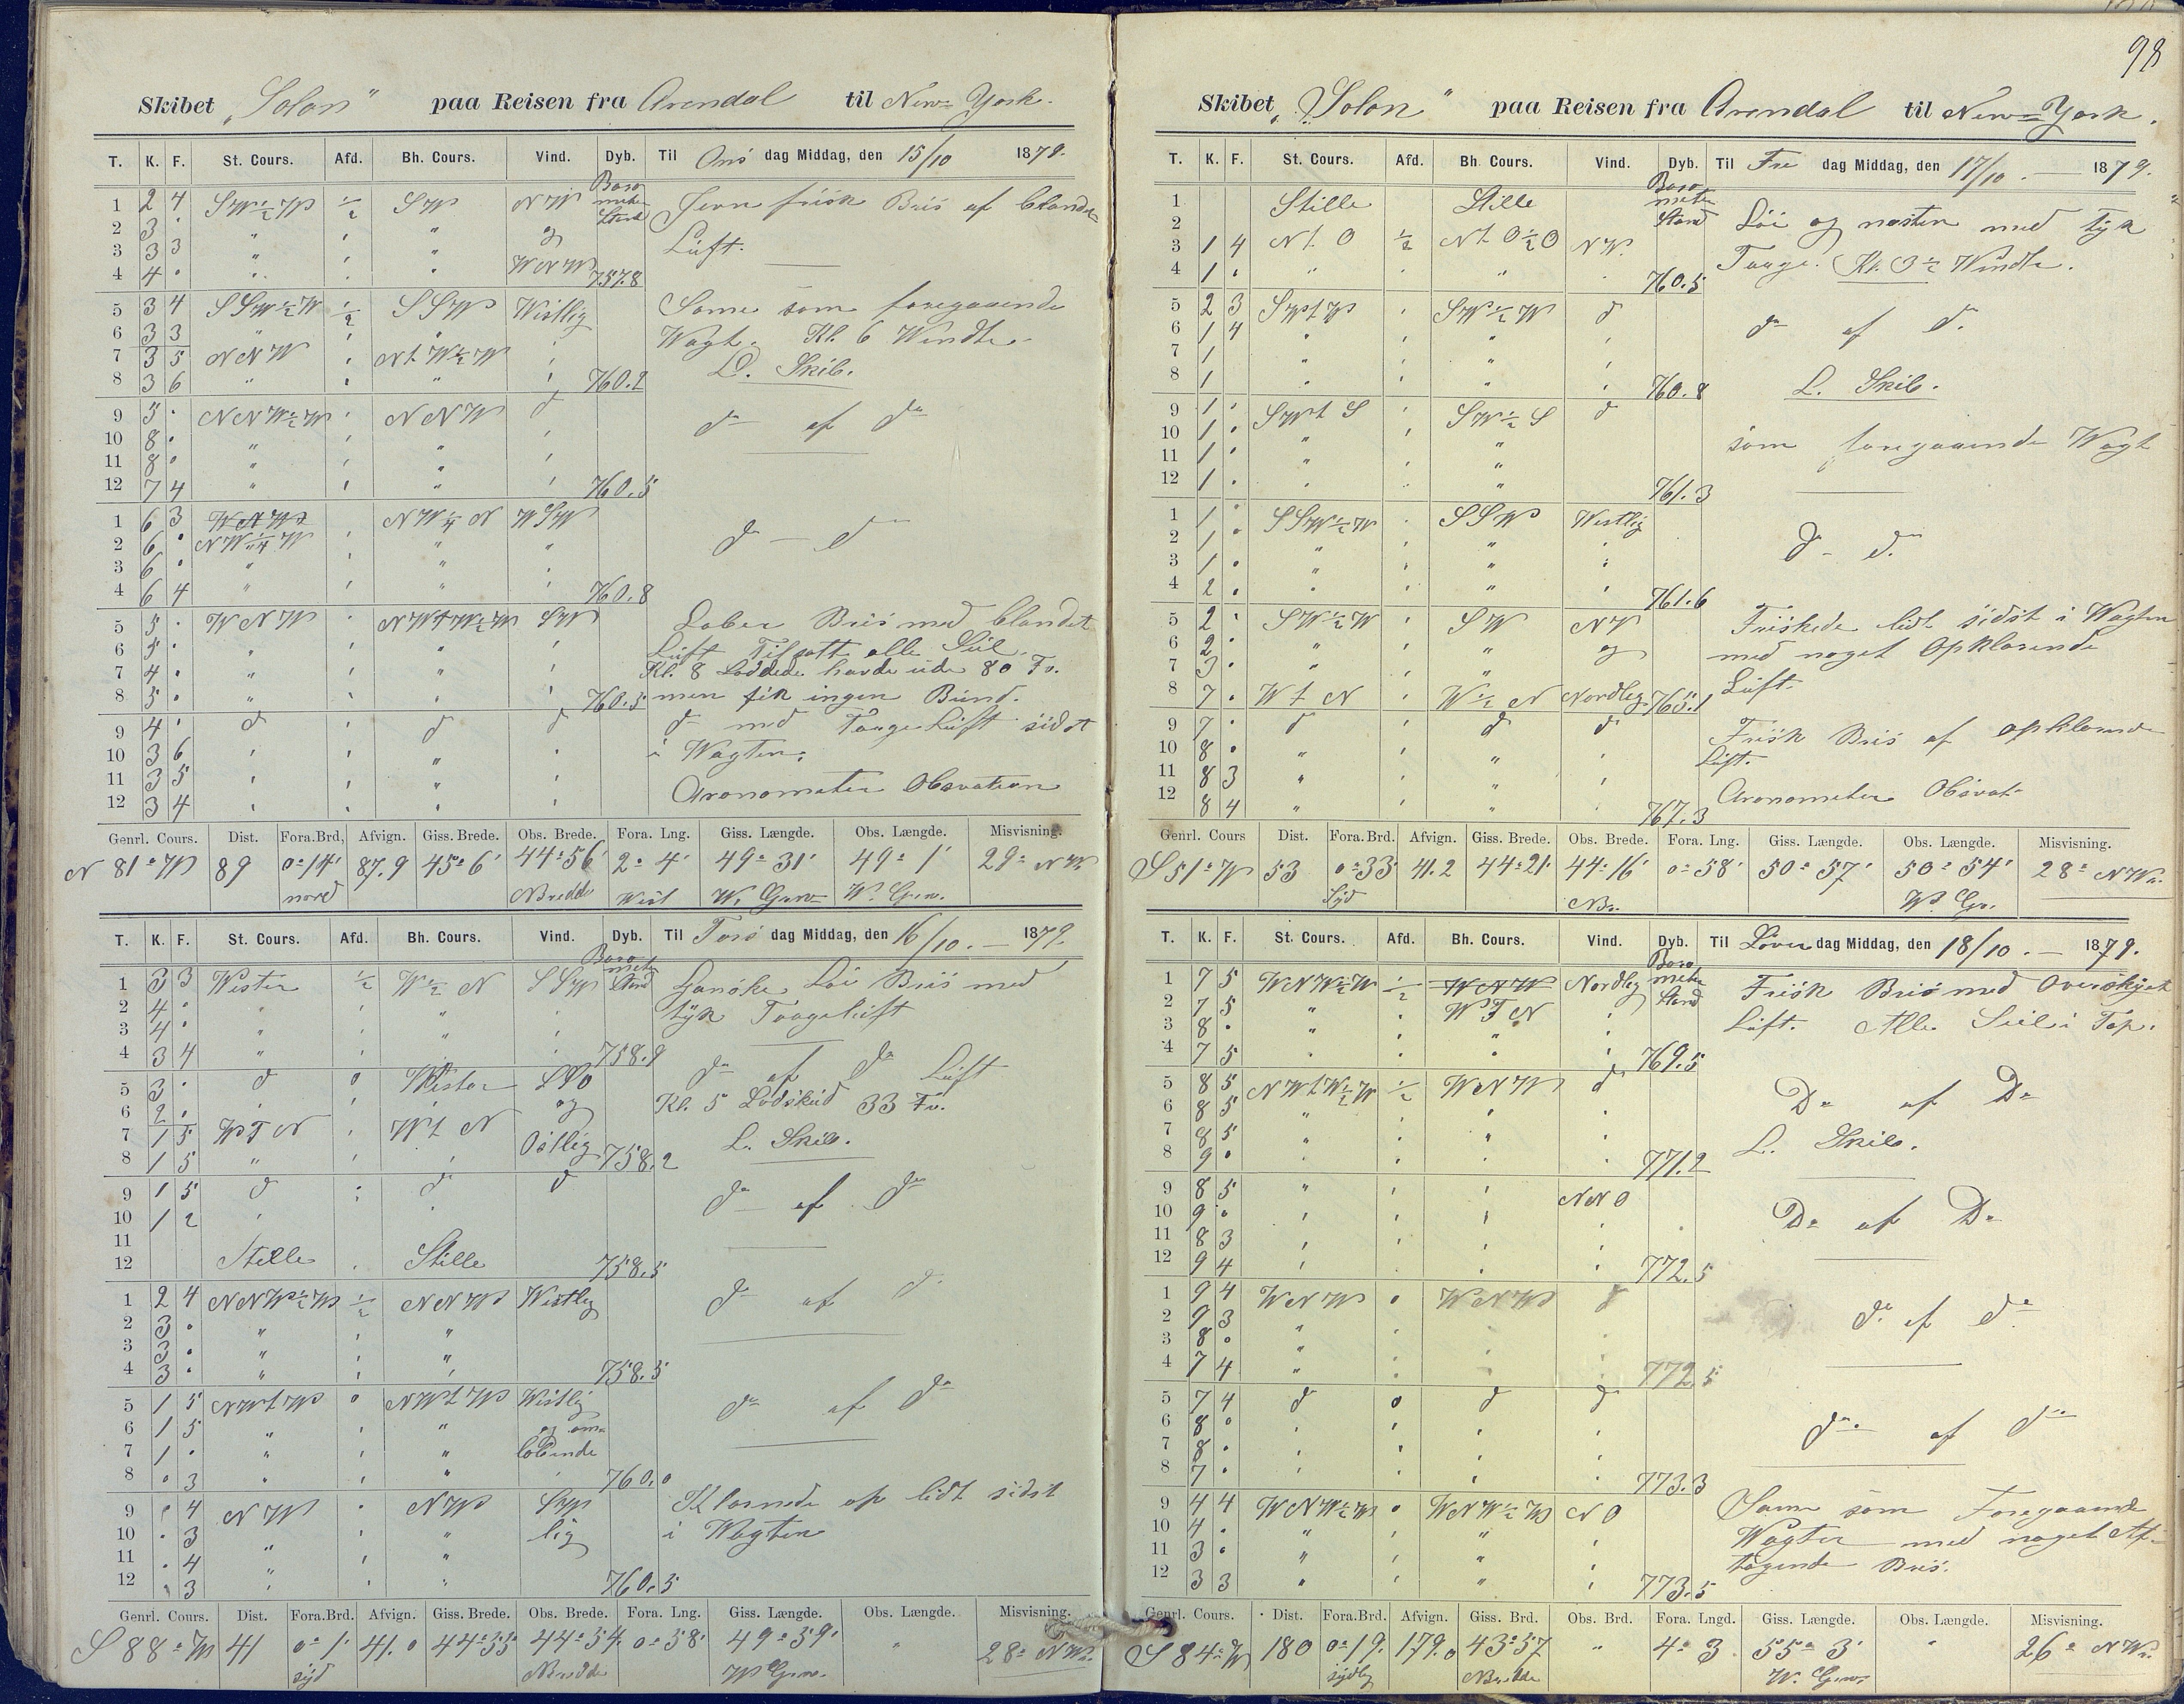 98
Skibet „Solon” paa Reisen fra Arendal til New=York.
T. K. F. St. Cours. Afd. Bh. Cours. Vind. Dyb. Til Ons dag Middag, den 15/10 1879.
Barometer Stand
1 2 4 SW½W ½ SW NW Jevn frisk Bris af blandet
2 3 . " " " og Luft.
3 3 3 " " "
4 4 . " " " WNW 757.8
5 3 4 SSW½W ½ SSW Westlig Same som foregaaende
6 3 3 " " " " Wagt. Kl. 6 Wendte.
7 3 5 NNW " NtW½W " L. Skib.
8 3 6 " " " " 760.2
9 5 . NNW½W " NNW d da af da
10 8 . " " " "
11 8 . " " " "
12 7 4 " " " " 760.5
1 6 3 WNW " NW¼N WSW
2 6 . NW¼W " " " da — da
3 6 . " " " "
4 6 4 " " " " 760.8
5 5 . WNW " NWtW½W SW Laber Bris med blandet
6 5 . " " " " Luft Tilsatt alle Seil.
7 4 . " " " " Kl. 8 Loddede havde ude 80 Fv.
8 5 . " " " " 760.5 men fik ingen Bund.
9 4 . d " d d da med Taage Luft sidst
10 3 6 " " " " i Wagten.
11 3 5 " " " "
12 3 4 " " " " Cronometer Obsvation
Genrl. Cours. Dist. Fora.Brd, Afvign. Giss. Brede. Obs. Brede. Fora. Lng. Giss. Længde. Obs. Længde. Misvisning.
N 81° W 89 0° 14' 87.9 45° 6' 44° 56' 2° 4' 49° 31' 49° 1' 29° NW.
nord Bredde West W. Grw. W. Grw.
T. K. F. St. Cours. Afd. Bh. Cours. Vind. Dyb. Til Tors dag Middag, den 16/10. — 1879.
Barometer Stand
1 3 3 Wester ½ W½N SSW Ganske Løi Bris med
2 4 . " " " " tyk Taageluft
3 4 . " " " "
4 3 4 " " " " 758.9
5 3 . d 0 Wester SSO da af da Luft
6 2 . " " " og Kl. 5 Lodskud 33 Fv.
7 1 5 WtN " WtN Østlig L. Skib.
8 1 5 " " " 758.2
9 1 5 d " d d da af da
10 1 2 " "
11
12 Stille " Stille 758.5
1 2 4 NNW½W ½ NNW Westlig da af d.
2 3 . " " "
3 3 . " " "
4 3 . " " " 758.5
5 1 5 NWtW 0 NWtW Westlig da af da
6 1 5 " " " og om=
7 1 . " " " løbende
8 . 3 " " " " 760.0
9 . 4 NW " NW Syd Klarnede op lidt sidst
10 . 3 " " " lig i Wagten
11 . 4 " " "
12 . 3 " " " 760.5
Genrl. Cours. Dist. Fora.Brd. Afvign. Giss. Brede. Obs. Brede. Fora. Lng. Giss. Længde. Obs. Længde. Misvisning.
S 88° W 41 0° 1' 41.0 44° 55' 44° 54' 0° 58' 49° 59' " 28° NW.
syd Bredde W Grw.
Skibet „Solon” paa Reisen fra Arendal til New=York.
T. K. F. St. Cours. Afd. Bh. Cours. Vind. Dyb. Til Fre dag Middag, den 17/10. — 1879.
Barometer Stand
1 Stille Stille Løi og næsten med tyk
2
3 1 4 NtO ½ NtO½O NW. Taage. Kl. 3½ Wendte.
4 1 . " " " " 760.5
5 2 3 SWtW " SW½W d da af d.
6 1 4 " " " "
7 1 " " " "
8 1 " " " " 760.8 L. Skib.
9 1 . SWtS " SW½S d
10 1 . " " " som foregaaende Wagt
11 1 . " " "
12 1 . " " " 761.3
1 1 . SSW½W " SSW Westlig
2 1 . " " " " da d.
3 1 . " " " "
4 2 . " " " " 761.6
5 2 . SW½W " SW NW Friskede lidt sidst i Wagten
6 2 . " " " og med noget Opklarende
7 3 . " " " Luft.
8 7 . WtN " W½N Nordleg 765.1
9 7 . d " d d Frisk Bris af opklarende
10 8 . " " " " Luft.
11 8 3 " " " "
12 8 4 " " " " 767.3 Cronometer Obsvat=
Genrl. Cours Dist. Fora.Brd. Afvign. Giss. Brede. Obs. Brede. Fora. Lng. Giss. Længde. Obs. Længde. Misvisning.
S 51° W 53 0° 33' 41.2 44° 21' 44° 16' 0° 58' 50° 57' 50° 54' 28° NW.
Syd Br. W. Gr.
T. K. F. St. Cours. Afd. Bh. Cours. Vind. Dyb. Til Løver dag Middag, den 18/10. — 1879.
Barometer Stand
1 7 5 WNW½W ½ WNW Nordleg Frisk Bris med Overskyet
2 7 5 " " WtN " Luft. Alle Seil i Top.
3 8 . " " " "
4 7 5 " " " " 769.5
5 8 5 NWtW½W ½ WNW d Da af Da
6 8 5 " " " "
7 8 5 " " " " L. Skib.
8 9 . " " " " 771.2
9 8 5 " " " NNO Da af Da
10 9 . " " " "
11 8 3 " " " "
12 9 4 " " " " 772.5
1 9 4 WNW 0 WNW d da af da
2 9 3 " " " "
3 8 . " " " "
4 7 4 " " " " 772.5
5 7 4 d 0 d d da. af da
6 8 . " " " "
7 8 . " " " "
8 7 . " " " " 773.3
9 4 4 WNW½W 0 WNW½W NO Same som Foregaaende
10 4 . " " " " Wagter med noget Af=
11 3 . " " " " tagende Bris.
12 3 3 " " " " 773.5
Genrl. Cours. Dist. Fora.Brd. Afvign. Giss. Brd. Obs. Brd. Fora. Lngd. Giss. Længde. Obs. Længde. Misvisning.
S 84° W 180 0° 19' 179.0 43° 57 " 4° 3 55° 3' " 26° NW.
sydlig Bredde W. Grw.